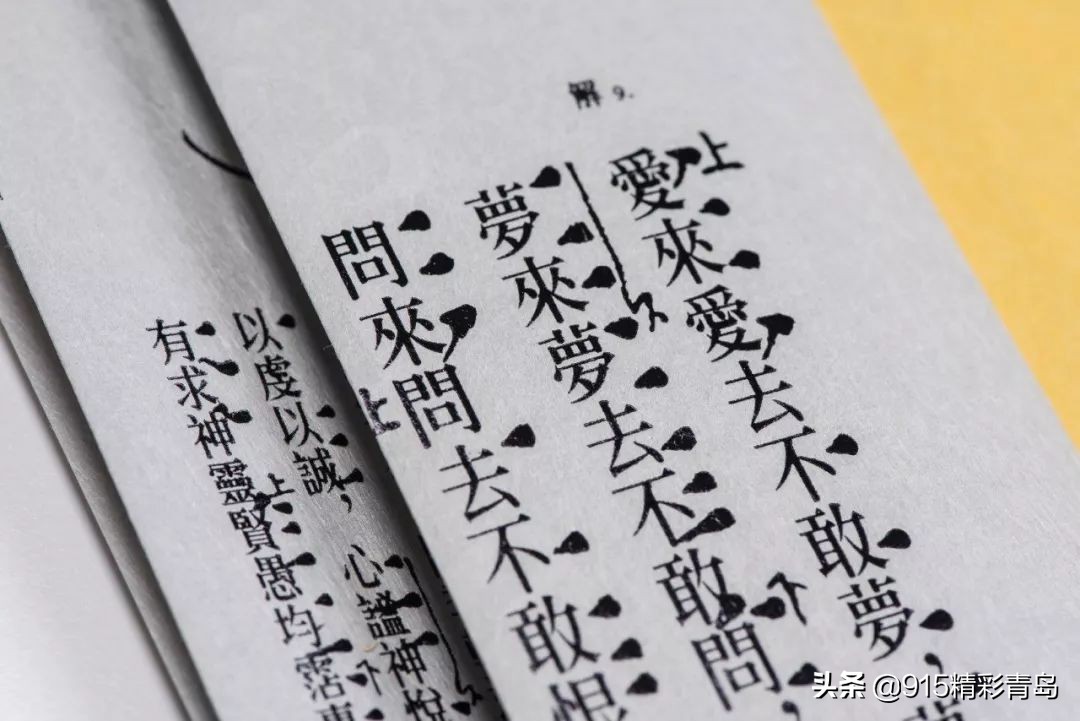 解 9.
上
愛來愛去不敢夢,
夢來夢去不敢問,
問來問去不敢恨
上
以虔以誠, 心謐神悅
有求神靈賢愚均霑
上
下
头条 @915精彩青岛